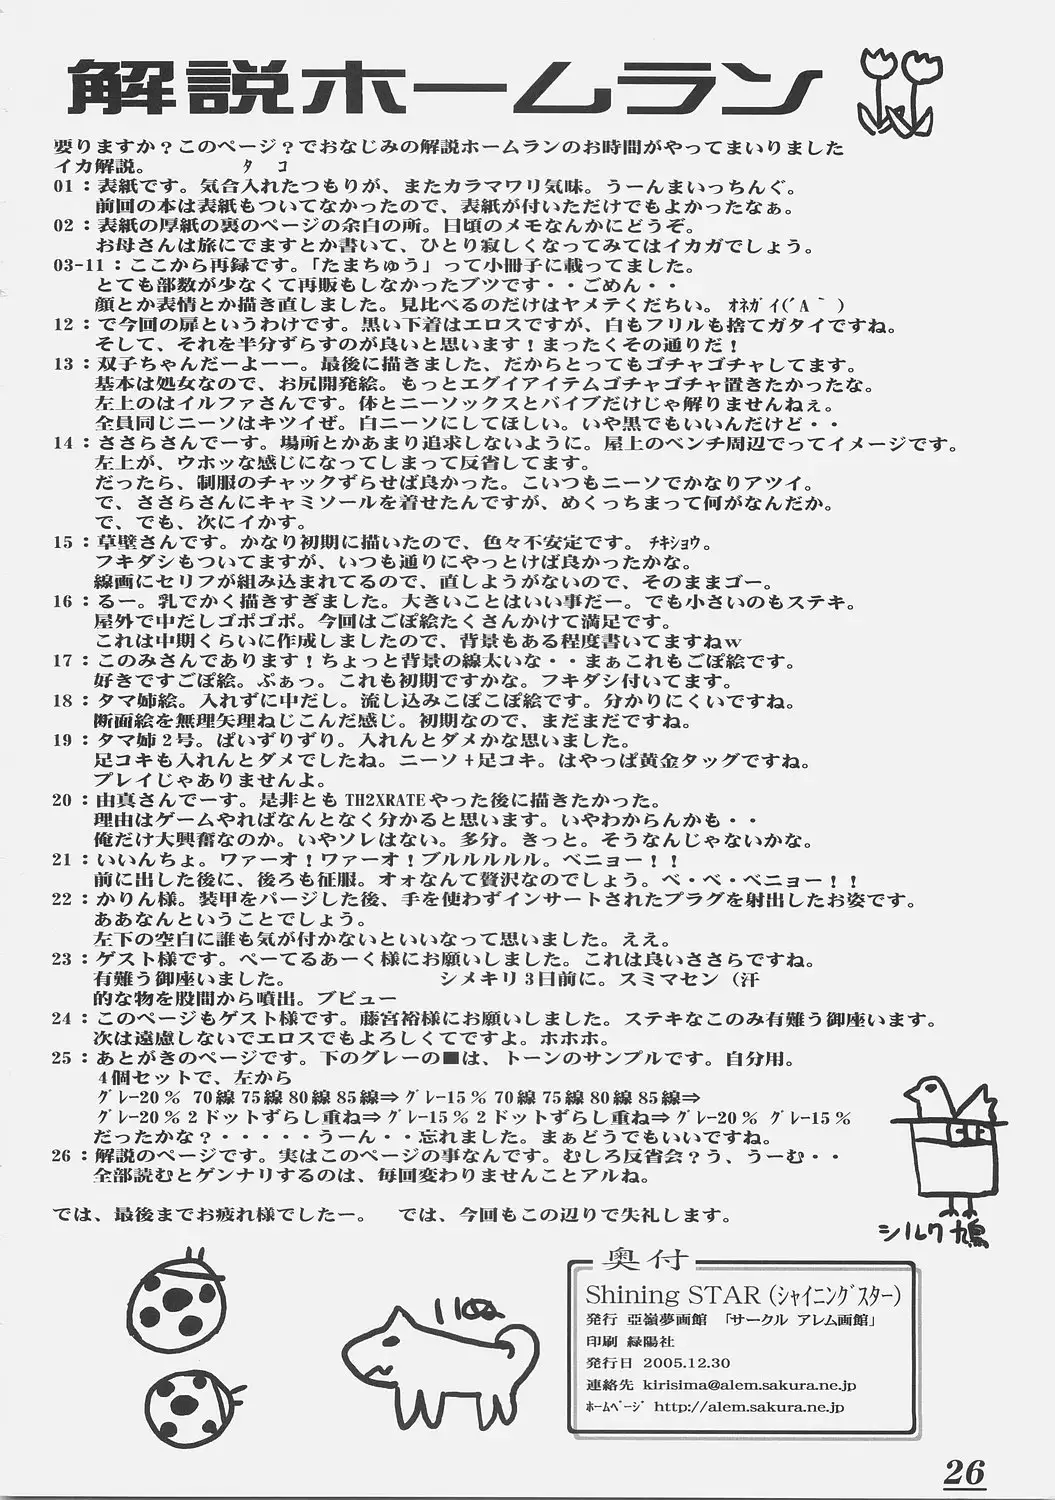 解説ホームラン
要りますか？このページ？でおなじみの解説ホームランのお時間がやってまいりました
イカ解説。　　　　　タ　コ
01：表紙です。気合入れたつもりが、またカラマワリ気味。うーんまいっちんぐ。
前回の本は表紙もついてなかったので、表紙が付いただけでもよかったなぁ。
02：表紙の厚紙の裏のページの余白の所。日頃のメモなんかにどうぞ。
お母さんは旅にでますとか書いて、ひとり寂しくなってみてはイカガでしょう。
03-11：ここから再録です。「たまちゅう」って小冊子に載ってました。
とても部数が少なくて再販もしなかったブツです・・ごめん・・
顔とか表情とか描き直しました。見比べるのだけはヤメテくだちい。ｵﾈｶﾞｲ(´A｀)
12：で今回の扉というわけです。黒い下着はエロスですが、白もフリルも捨てガタイですね。
そして、それを半分ずらすのが良いと思います！まったくその通りだ！
13：双子ちゃんだーよーー。最後に描きました、だからとってもゴチャゴチャしてます。
基本は処女なので、お尻開発絵。もっとエグイアイテムゴチャゴチャ置きたかったな。
左上のはイルファさんです。体とニーソックスとバイブだけじゃ解りませんねぇ。
全員同じニーソはキツイぜ。白ニーソにしてほしい。いや黒でもいいんだけど・・
14：ささらさんでーす。場所とかあまり追求しないように。屋上のベンチ周辺でってイメージです。
左上が、ウホッな感じになってしまって反省してます。
だったら、制服のチャックずらせば良かった。こいつもニーソでかなりアツイ。
で、ささらさんにキャミソールを着せたんですが、めくっちまって何がなんだか。
で、でも、次にイかす。
15：草壁さんです。かなり初期に描いたので、色々不安定です。ﾁｷｼｮｳ。
フキダシもついてますが、いつも通りにやっとけば良かったかな。
線画にセリフが組み込まれてるので、直しようがないので、そのままゴー。
16：るー。乳でかく描きすぎました。大きいことはいい事だー。でも小さいのもステキ。
屋外で中だしゴポゴポ。今回はごぽ絵たくさんかけて満足です。
これは中期くらいに作成しましたので、背景もある程度書いてますねｗ
17：このみさんであります！ちょっと背景の線太いな・・まぁこれもごぽ絵です。
好きですごぽ絵。ぷぁっ。これも初期ですかな。フキダシ付いてます。
18：タマ姉絵。入れずに中だし。流し込みこぽこぽ絵です。分かりにくいですね。
断面絵を無理矢理ねじこんだ感じ。初期なので、まだまだですね。
19：タマ姉２号。ぱいずりずり。入れんとダメかな思いました。
足コキも入れんとダメでしたね。ニーソ＋足コキ。はやっぱ黄金タッグですね。
プレイじゃありませんよ。
20：由真さんでーす。是非ともTH2XRATEやった後に描きたかった。
理由はゲームやればなんとなく分かると思います。いやわからんかも・・
俺だけ大興奮なのか。いやソレはない。多分。きっと。そうなんじゃないかな。
21：いいんちょ。ワァーオ！ワァーオ！ブルルルルル。ベニョー！！
前に出した後に、後ろも征服。オォなんて贅沢なのでしょう。ベ・ベ・ベニョー！！
22：かりん様。装甲をパージした後、手を使わずインサートされたプラグを射出したお姿です。
ああなんということでしょう。
左下の空白に誰も気が付かないといいなって思いました。ええ。
23：ゲスト様です。ぺーてるあーく様にお願いしました。これは良いささらですね。
有難う御座いました。　　　　　　　シメキリ３日前に。スミマセン（汗
的な物を股間から噴出。ブビュー
24：このページもゲスト様です。藤宮裕様にお願いしました。ステキなこのみ有難う御座います。
次は遠慮しないでエロスでもよろしくてですよ。ホホホ。
25：あとがきのページです。下のグレーの■は、トーンのサンプルです。自分用。
４個セットで、左から
ｸﾞﾚｰ20％ 70線 75線 80線 85線⇒ｸﾞﾚｰ15％ 70線 75線 80線 85線⇒
ｸﾞﾚｰ20％２ドットずらし重ね⇒ｸﾞﾚｰ15％２ドットずらし重ね⇒ｸﾞﾚｰ20％ ｸﾞﾚｰ15％
だったかな？・・・・・うーん・・忘れました。まぁどうでもいいですね。
26：解説のページです。実はこのページの事なんです。むしろ反省会？う、うーむ・・
全部読むとゲンナリするのは、毎回変わりませんことアルね。
では、最後までお疲れ様でしたー。　では、今回もこの辺りで失礼します。
シルク鳩
奥付
Shining STAR（ｼｬｲﾆﾝｸﾞｽﾀｰ）
発行 亞嶺夢画館 「サークル アレム画館」
印刷 緑陽社
発行日 2005.12.30
連絡先 kirisima@alem.sakura.ne.jp
ﾎｰﾑﾍﾟｰｼﾞ http://alem.sakura.ne.jp
26